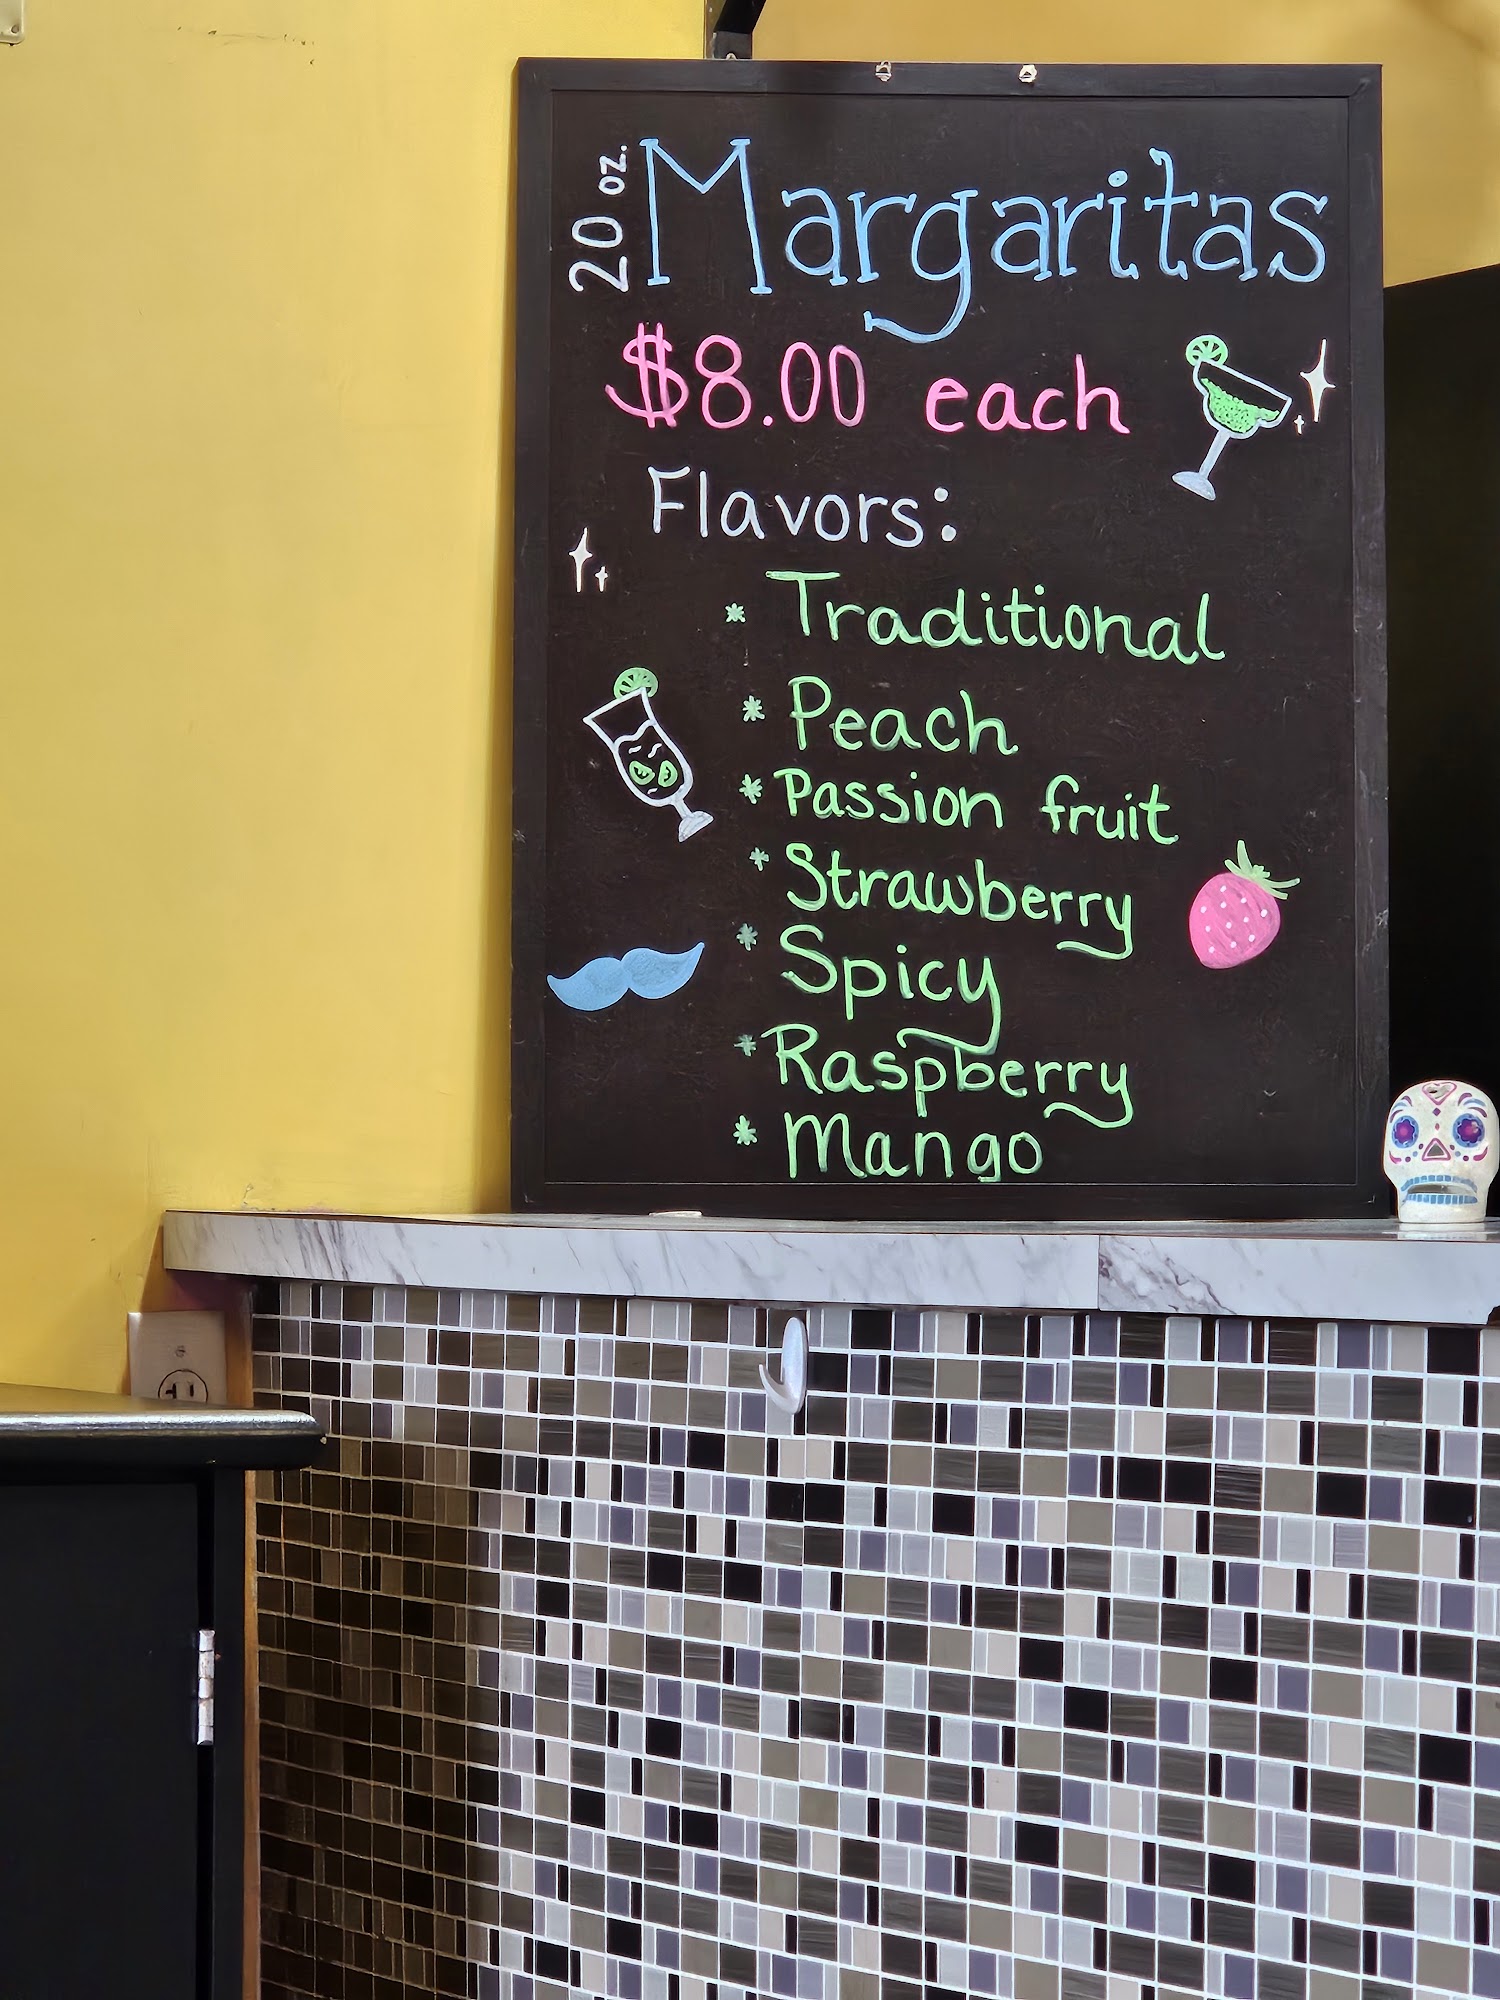 20 oz. Margaritas
$8.00 each
Flavors:
* Traditional
* Peach
* Passion fruit
* Strawberry
* Spicy
* Raspberry
* Mango